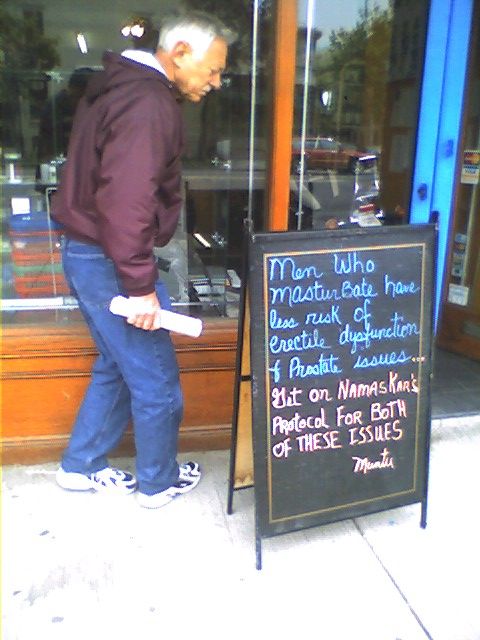 Men Who
Masturbate have
less risk of
erectile dysfunction
& Prostate issues...
Get on NAMASKAR's
PROTOCOL FOR BOTH
OF THESE ISSUES
Muntu